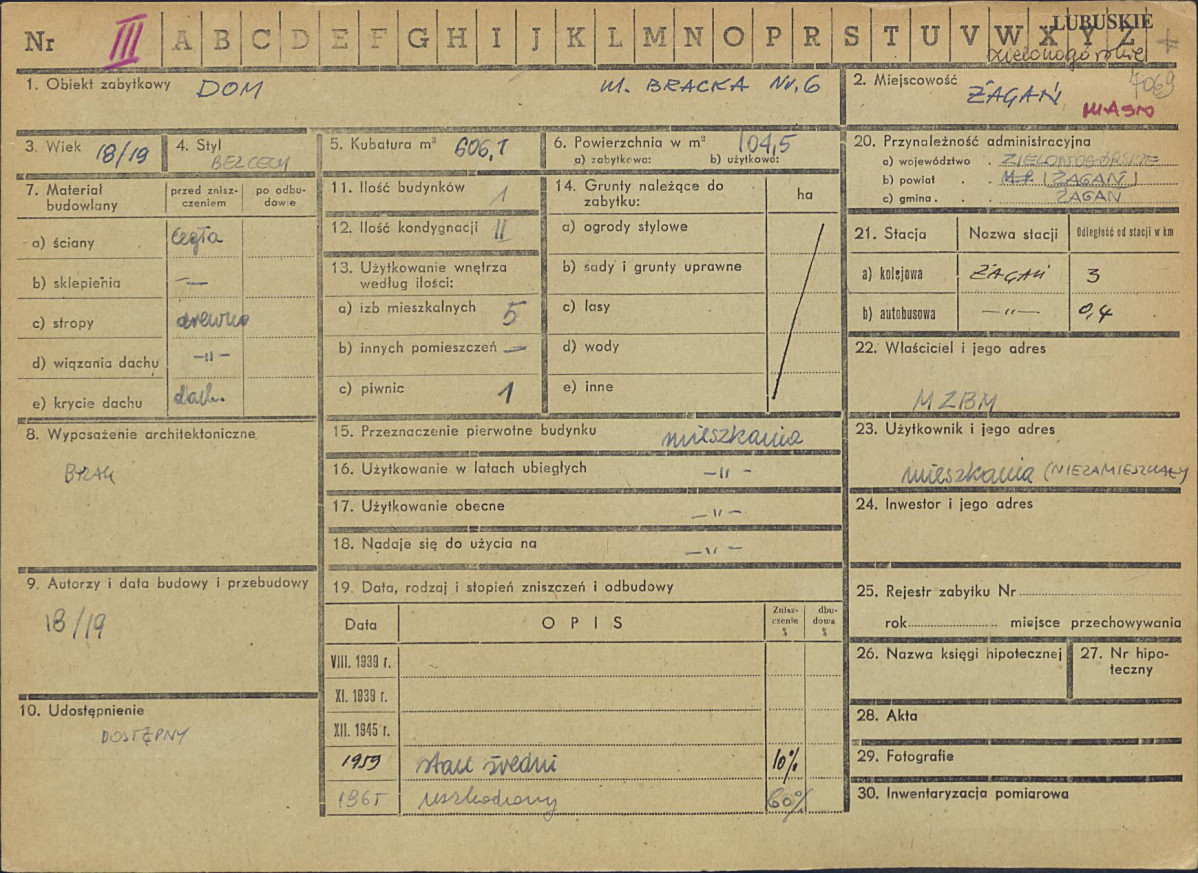 Nr III A B C D E F G H I J K L M N O P R S T U V W X Y Z
LUBUSKIE
zielonogórskie
7069
1. Obiekt zabytkowy DOM ul. BRACKA Nr. 6
2. Miejscowość ŻAGAŃ
MIASTO
3. Wiek 18/19
4. Styl BEZ CECH
5. Kubatura m³ 606,1
6. Powierzchnia w m² 104,5
a) zabytkowa: b) użytkowa:
7. Materiał budowlany
przed zniszczeniem
po odbudowie
a) ściany cegła
b) sklepienia —
c) stropy drewno
d) wiązania dachu —"—
e) krycie dachu dach.
8. Wyposażenie architektoniczne
BRAK
9. Autorzy i data budowy i przebudowy
18/19
10. Udostępnienie
DOSTĘPNY
11. Ilość budynków 1
12. Ilość kondygnacji II
13. Użytkowanie wnętrza
według ilości:
a) izb mieszkalnych 5
b) innych pomieszczeń —
c) piwnic 1
14. Grunty należące do
zabytku:
ha
a) ogrody stylowe
b) sady i grunty uprawne
c) lasy
d) wody
e) inne
15. Przeznaczenie pierwotne budynku mieszkania
16. Użytkowanie w latach ubiegłych —"—
17. Użytkowanie obecne —"—
18. Nadaje się do użycia na —"—
19. Data, rodzaj i stopień zniszczeń i odbudowy
Data OPIS Znisz-
czenie
% dbu-
dowa
%
VIII. 1939 r.
XI. 1939 r.
XII. 1945 r.
1959 stan średni 10%
1965 uszkodzony 60%
20. Przynależność administracyjna
a) województwo ZIELONOGÓRSKIE
b) powiat M.P. (ŻAGAŃ)
c) gmina ŻAGAŃ
21. Stacja Nazwa stacji Odległość od stacji w km
a) kolejowa ŻAGAŃ 3
b) autobusowa —"— 0,4
22. Właściciel i jego adres
MZBM
23. Użytkownik i jego adres
mieszkania (NIEZAMIESZKAŁY
24. Inwestor i jego adres
25. Rejestr zabytku Nr
rok miejsce przechowywania
26. Nazwa księgi hipotecznej
27. Nr hipo-
teczny
28. Akta
29. Fotografie
30. Inwentaryzacja pomiarowa